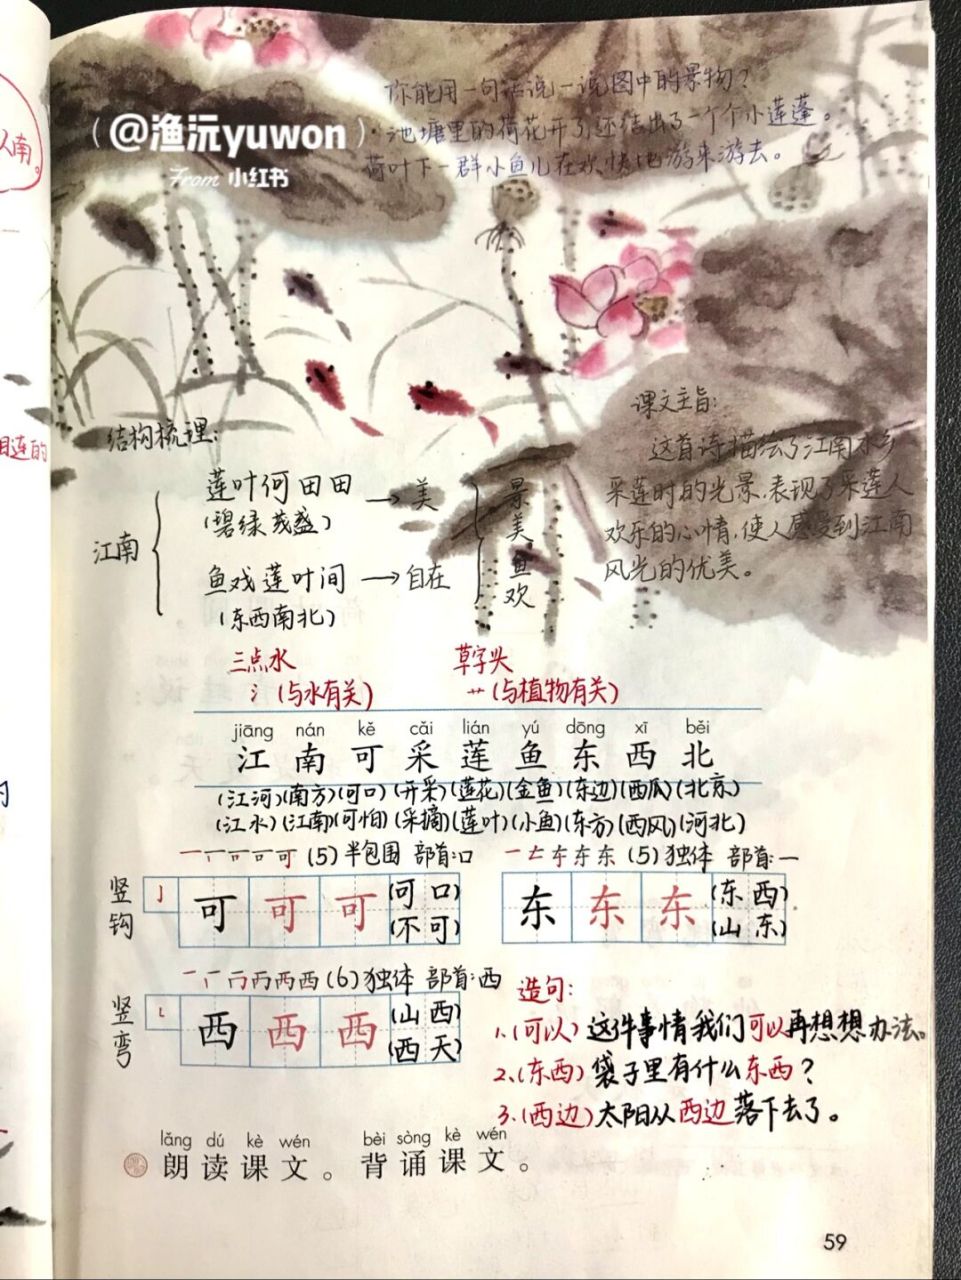 人南。
相连的
你能用一句话说一说图中的景物？
池塘里的荷花开了,还结出了一个个小莲蓬。
荷叶下一群小鱼儿在欢快地游来游去。
(@渔沅yuwon)
From 小红书
结构梳理:
江南
莲叶何田田 → 美
(碧绿茂盛)
鱼戏莲叶间 → 自在
(东西南北)
景美鱼欢
课文主旨:
这首诗描绘了江南水乡
采莲时的光景,表现了采莲人
欢乐的心情,使人感受到江南
风光的优美。
三点水
氵(与水有关)
草字头
艹(与植物有关)
jiāng nán kě cǎi lián yú dōng xī běi
江 南 可 采 莲 鱼 东 西 北
(江河)(南方)(可口)(开采)(莲花)(金鱼)(东边)(西瓜)(北京)
(江水)(江南)(可怕)(采摘)(莲叶)(小鱼)(东方)(西风)(河北)
(5)半包围 部首:口
竖钩
可 可 可 (可口)
(不可)
(5)独体 部首:一
东 东 东 (东西)
(山东)
(6)独体 部首:西
竖弯
西 西 西 (山西)
(西天)
造句:
1.(可以)这件事情我们可以再想想办法。
2.(东西)袋子里有什么东西?
3.(西边)太阳从西边落下去了。
lǎng dú kè wén bèi sòng kè wén
朗读课文。背诵课文。
59